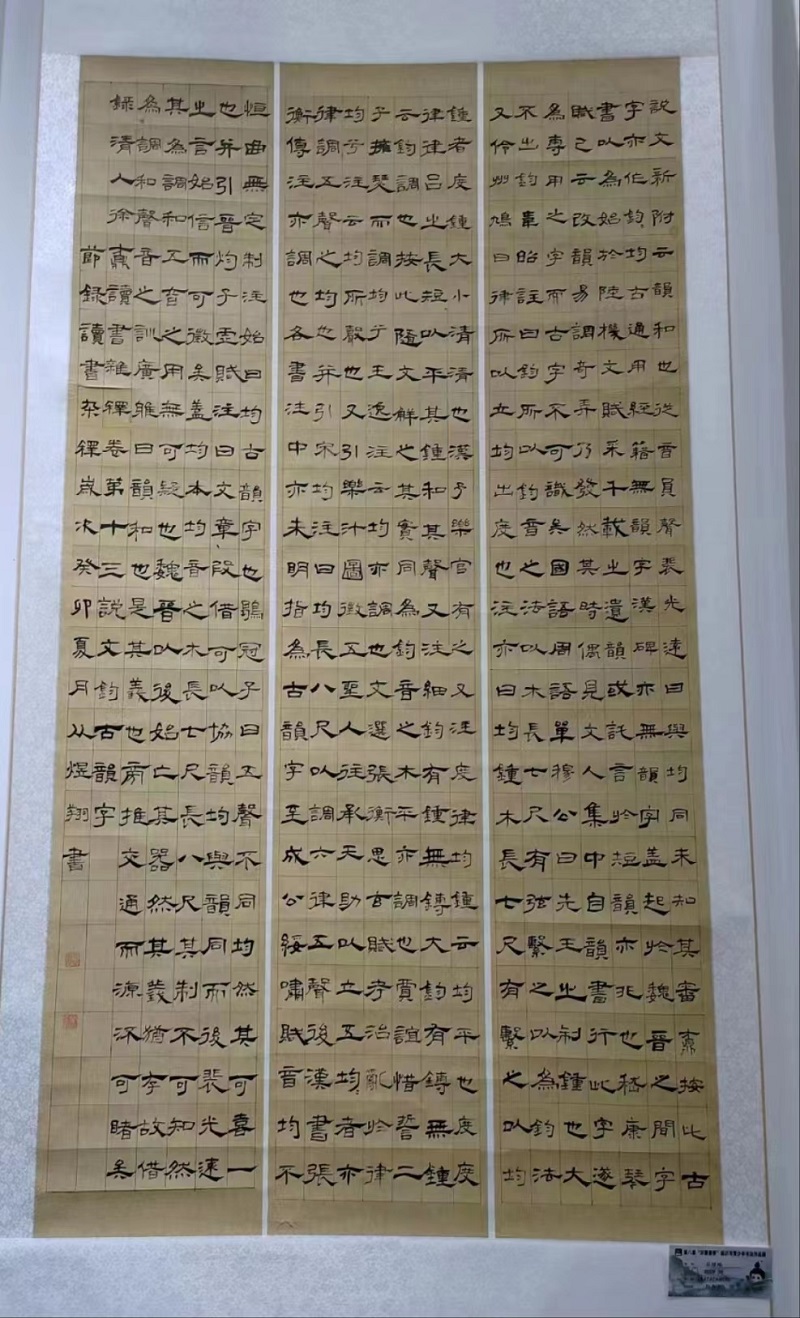 說文新附云韻和也從音員聲裴光遠曰與均同未知其審鼒按比古
字亦作鈞均古通用經籍無韻字漢碑亦無韻字蓋起於魏晉之間字
書以為始於陸機文賦采千載之遺韻或託言於短韻亦非也嵇康琴
賦已云改韻易調奇弄乃發然其時偶見文人集中自韻書行此字遂
為專用之字而古字不可識矣國語周語單穆公曰先王之制鍾也大
不出鈞韋昭註曰鈞所以鈞音之法以木長七尺有弦繫之以為鈞法
又伶州鳩曰律所以立均出度也注亦曰均鍾木長七尺有繫之以均
鍾者度鍾大小清濁也漢予樂官有之又注度律均鍾云均平也度度
律律呂之長短以平其鍾和其聲又注細鈞有鍾無鎛大鈞有鎛無鍾
云鈞調也按此隨文解之其實同為鈞音之木平亦調也賈誼惜誓二
子擁瑟而調均予王逸注云均亦調也文選張衡思玄賦考治亂於律
均兮注云均所聲也又引樂汁圖徵五聖人往承天助以立五均者亦
律調五聲之均也并引宋均注曰均長八尺以調六律五聲後漢書張
衡傳注亦調也各書注中亦未明指為古韻字至成公綏嘯賦音均不
恒曲無定制注始曰均古韻字也鶡冠子曰五聲不同均然其可喜一
也并引晉灼子虛賦注曰文章段借可以協韻均與韻同而後裴光遠
之言始信而可徵矣蓋均本均音之木長七尺長八尺其制不可知然
其為調和五音之用無可疑也魏晉以後始亡其器然其義猶存故借
為調和聲音之訓廣雅曰韻和也是其義也爾推交通而源不可睹矣
錄清人徐鼒讀書雜釋卷第十三說文鈞古韻字
節錄讀書杂釋歲次癸卯夏月从煜翔書